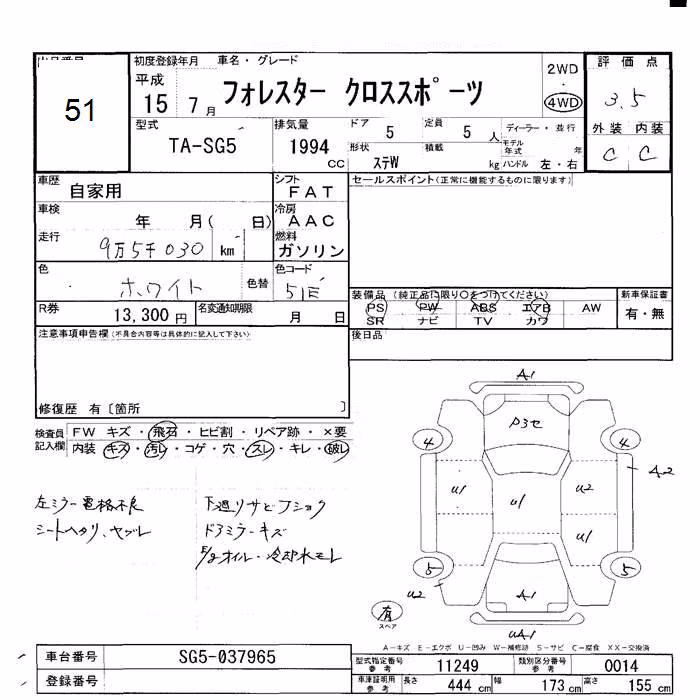 出品番号
51
初度登録年月 車名・グレード
平成
15 7月 フォレスター クロススポーツ
2WD
4WD
評価点
3.5
外装 内装
C C
型式
TA-SG5
排気量
1994
CC
ドア 5
定員 5 人
形状
ステW
積載
kg
ディーラー・並行
モデル年式 年
ハンドル 左・右
車歴
自家用
シフト
FAT
セールスポイント(正常に機能するものに限ります)
車検
年 月( 日)
冷房
AAC
走行
9万5千030 km
燃料
ガソリン
色
ホワイト 色替
色コード
51E
R券
13,300 円
名変通知期限
月 日
装備品 (純正品に限り○をつけてください)
PS PW ABS エアB AW
SR ナビ TV カワ
新車保証書
有・無
後日品
注意事項申告欄(不具合内容等は具体的に記入して下さい)
修復歴 有〔箇所 〕
検査員記入欄
FW キズ・飛石・ヒビ割・リペア跡・×要
内装 キズ・汚レ・コゲ・穴・スレ・キレ・破レ
左ミラー電格不良
シートヘタリ、ヤブレ
下廻りサビフショク
ドアミラーキズ
E/gオイル・冷却水モレ
A1
P3セ
4 4
A2
U1 U1 U2
U1
5 5
U2
A1
UA1
有
スペア
A-キズ E-エクボ U-凹み W-補修跡 S-サビ C-腐食 XX-交換済
車台番号 SG5-037965
登録番号
型式指定番号 参考 11249
類別区分番号 参考 0014
車庫証明用 参考
長さ 444 cm
幅 173 cm
高さ 155 cm